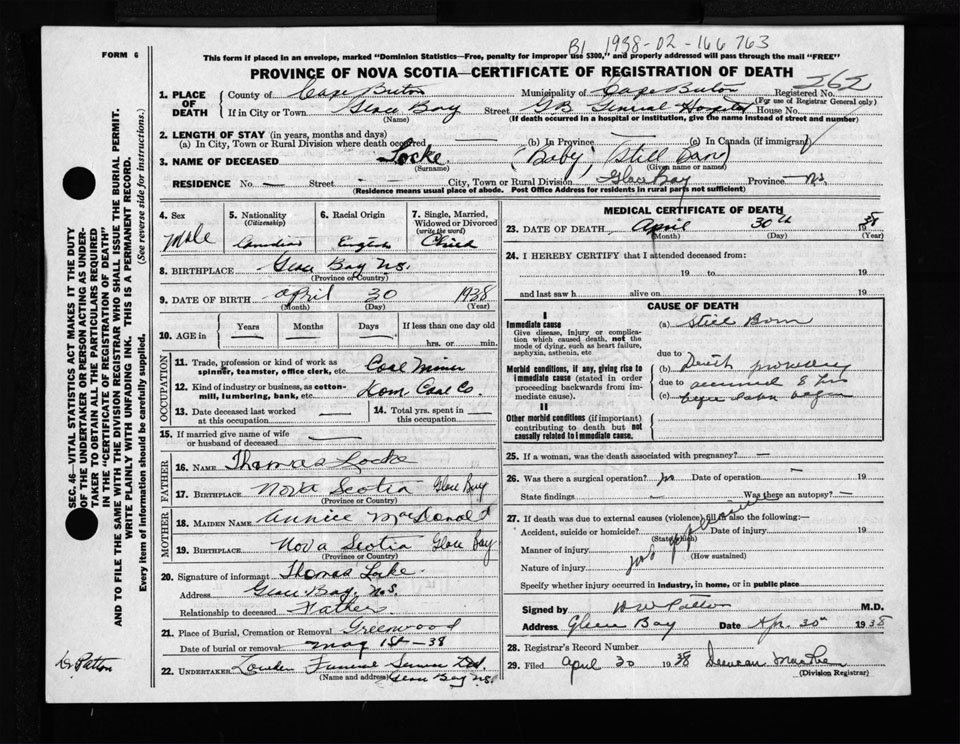 B1 1938-02-166763
FORM 6
This form if placed in an envelope, marked "Dominion Statistics—Free, penalty for improper use $300," and properly addressed will pass through the mail "FREE"
PROVINCE OF NOVA SCOTIA—CERTIFICATE OF REGISTRATION OF DEATH
262
1. PLACE OF DEATH
County of Cape Breton Municipality of Cape Breton Registered No.
(For use of Registrar General only)
If in City or Town Glace Bay Street G.B. General Hospital House No.
(Name) (If death occurred in a hospital or institution, give the name instead of street and number)
2. LENGTH OF STAY (in years, months and days)
(a) In City, Town or Rural Division where death occurred — (b) In Province (c) In Canada (if immigrant)
3. NAME OF DECEASED Locke. (Baby) (Still Born)
(Surname) (Given name or names)
RESIDENCE No. — Street - City, Town or Rural Division Glace Bay Province N.S.
(Residence means usual place of abode. Post Office Address for residents in rural parts not sufficient)
4. Sex Male
5. Nationality (Citizenship) Canadian
6. Racial Origin English
7. Single, Married, Widowed or Divorced (write the word) Child
8. BIRTHPLACE Glace Bay N.S.
(Province or Country)
9. DATE OF BIRTH April 30 1938
(Month) (Day) (Year)
10. AGE in Years Months Days If less than one day
hrs. or min.
OCCUPATION
11. Trade, profession or kind of work as spinner, teamster, office clerk, etc. Coal Miner
12. Kind of industry or business, as cotton-mill, lumbering, bank, etc. Dom. Coal Co.
13. Date deceased last worked at this occupation —
14. Total yrs. spent in this occupation —
15. If married give name of wife or husband of deceased —
FATHER
16. NAME Thomas Locke
17. BIRTHPLACE Nova Scotia Glace Bay
(Province or Country)
MOTHER
18. MAIDEN NAME Annice MacDonald
19. BIRTHPLACE Nova Scotia Glace Bay
(Province or Country)
20. Signature of informant Thomas Locke.
Address Glace Bay, N.S.
Relationship to deceased Father
21. Place of Burial, Cremation or Removal Greenwood
Date of burial or removal May 1st-38
22. UNDERTAKER Funeral Service Ltd.
(Name and address) Glace Bay N.S.
MEDICAL CERTIFICATE OF DEATH
23. DATE OF DEATH April 30th 1938
(Month) (Day) (Year)
24. I HEREBY CERTIFY that I attended deceased from:
19 to 19
and last saw h alive on 19
CAUSE OF DEATH
I
Immediate cause
Give disease, injury or complication which caused death, not the mode of dying, such as heart failure, asphyxia, asthenia, etc
(a) Still Born
due to
Morbid conditions, if any, giving rise to immediate cause (stated in order proceeding backwards from immediate cause).
(b) Death probably
due to occurred 8 hrs
(c) before labor began
II
Other morbid conditions (if important) contributing to death but not causally related to immediate cause.
25. If a woman, was the death associated with pregnancy? —
26. Was there a surgical operation? no Date of operation — 19
State findings — Was there an autopsy? —
27. If death was due to external causes (violence) fill in also the following:—
Accident, suicide or homicide? Date of injury 19
(State which)
Manner of injury
(How sustained)
Nature of injury
Specify whether injury occurred in industry, in home, or in public place
Signed by Patton M.D.
Address Glace Bay Date Apr. 30th 1938
28. Registrar's Record Number
29. Filed April 30 1938 Duncan MacRae
(Division Registrar)
SEC. 46—VITAL STATISTICS ACT MAKES IT THE DUTY
OF THE UNDERTAKER OR PERSON ACTING AS UNDER-
TAKER TO OBTAIN ALL THE PARTICULARS REQUIRED
IN THE "CERTIFICATE OF REGISTRATION OF DEATH"
AND TO FILE THE SAME WITH THE DIVISION REGISTRAR WHO SHALL ISSUE THE BURIAL PERMIT.
WRITE PLAINLY WITH UNFADING INK. THIS IS A PERMANENT RECORD.
Every item of information should be carefully supplied. (See reverse side for instructions.)
Dr Patton